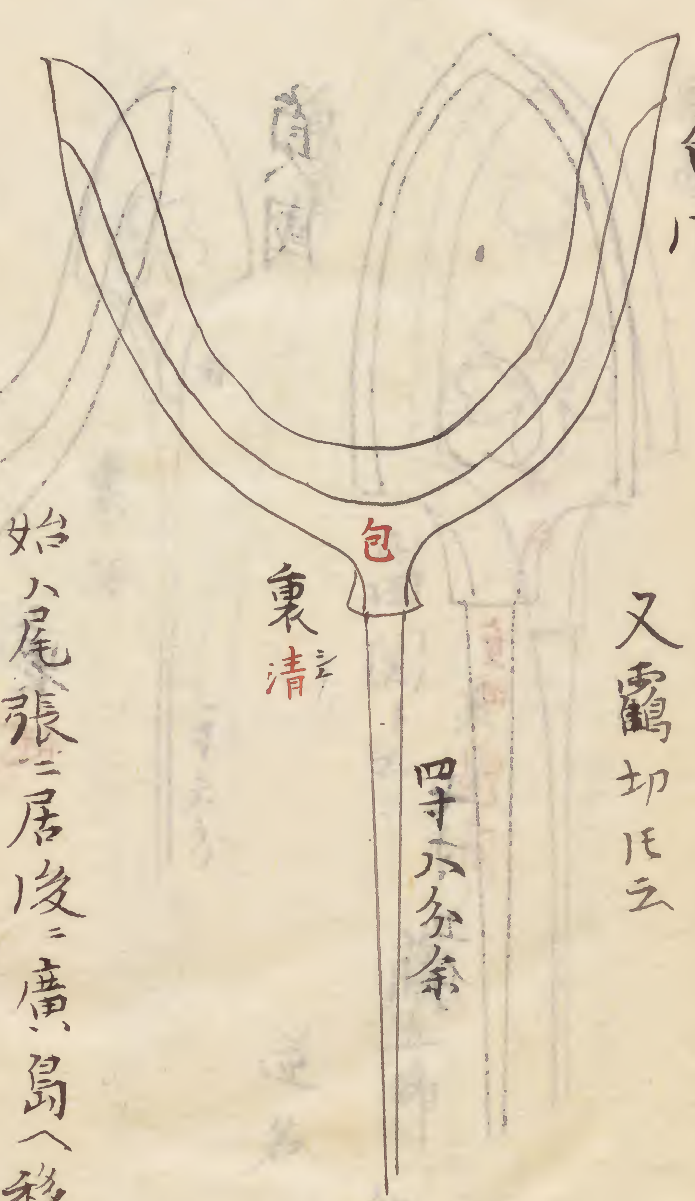 又靏切𪜈云
四寸八分余
包
裏
清
始ハ尾張ニ居後ニ廣島ヘ移